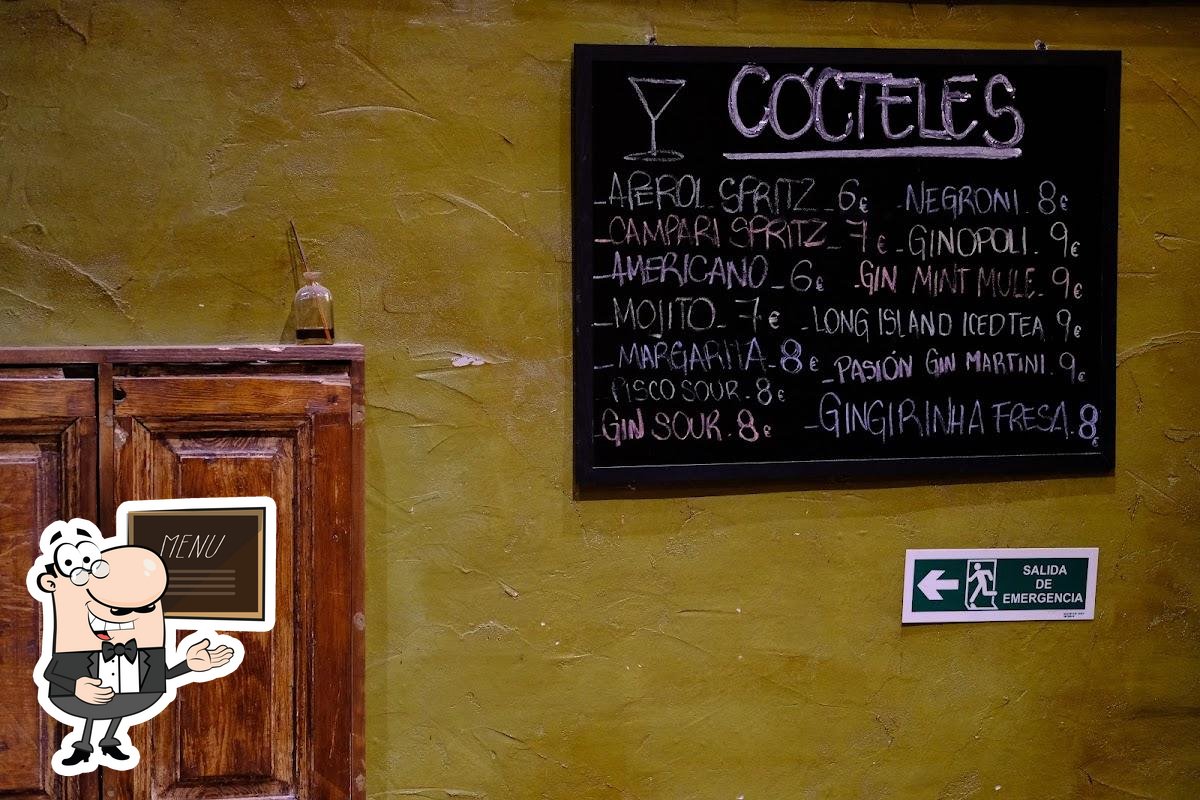 CÓCTELES
-APEROL SPRITZ_6€
-CAMPARI SPRITZ_7€
-AMERICANO_6€
-MOJITO_7€
-MARGARITA_8€
-PISCO SOUR.8€
-GIN SOUR.8€
-NEGRONI.8€
-GINOPOLI.9€
-GIN MINT MULE.9€
-LONG ISLAND ICED TEA 9€
-PASIÓN GIN MARTINI.9€
-GINGIRINHA FRESA.8€
SALIDA
DE
EMERGENCIA
MENU